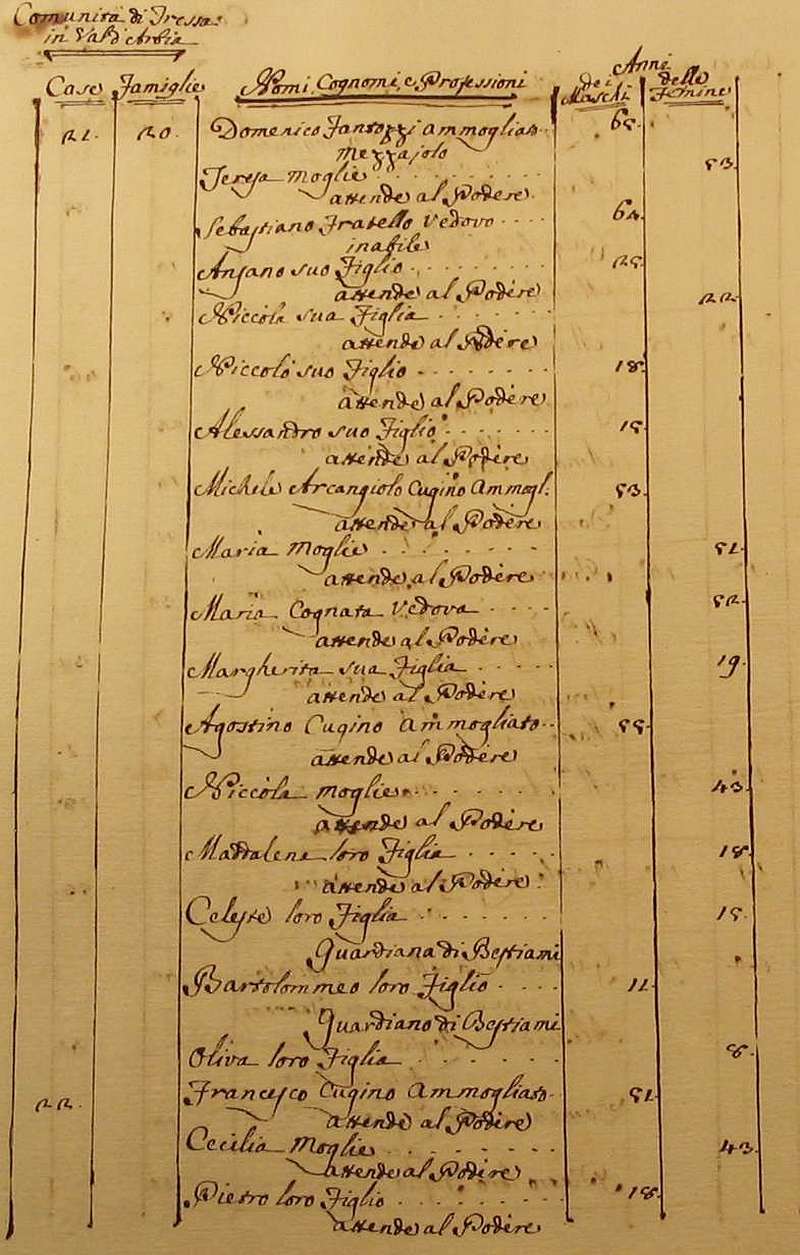 Comunità di Tressa
in Val d'Arbia
Case Famiglie Nomi, Cognomi, e Professioni Anni
dei Maschi delle Femine
21. 20. Domenico Fantozzi Ammogliato 65.
Mezzajolo
Teresa Moglie 53.
attende al Podere
Sebastiano Fratello Vedovo 62.
inabile
Ansano suo Figlio 25.
attende al Podere
Niccola sua Figlia 22.
attende al Podere
Niccolò suo Figlio 18.
attende al Podere
Alessandro suo Figlio 15.
attende al Podere
Michele Arcangiolo Cugino Ammogl. 53.
attende al Podere
Maria Moglie 51.
attende al Podere
Maria Cognata Vedova 52.
attende al Podere
Margherita sua Figlia 19.
attende al Podere
Agostino Cugino Ammogliato 55.
attende al Podere
Niccola Moglie 43.
attende al Podere
Maddalena loro Figlia 18.
attende al Podere
Celeste loro Figlia 15.
Guardiana di Bestiami
Bartolommeo loro Figlio 11.
Guardiano di Bestiami
Oliva loro Figlia 8.
22. Francesco Cugino Ammogliato 51.
attende al Podere
Cecilia Moglie 43.
attende al Podere
Pietro loro Figlio 18.
attende al Podere